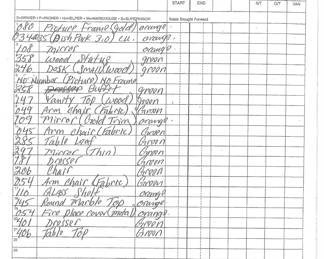 START END O/T O/T VAN
D=DRIVER P=PACKER H=HELPER W=WAREHOUSE S=SUPERVISOR Totals Brought Forward
080 Picture Frame (gold) orange
orange.
108 mirror orange.
358 Wood Statue green
246 Desk (Small wood) green
No Number (Picture) No Frame
258 Buffet green
147 Vanity Top (wood) green
049 Arm Chair (Fabric) Green
109 Mirror (Gold Trim) orange.
045 Arm chair (Fabric) Green
285 Table Leaf Green
397 Mirror (Thin) Green
181 Dresser Green
206 Chair Green
054 Arm chair (Fabric) Green
110 Glass Shelf orange
145 Round Marble Top orange
054 Fire place cover (metal) orange.
401 Dresser Green
406 Table Top Green